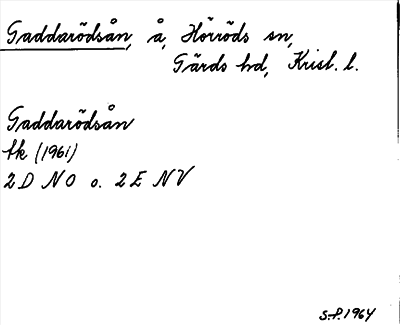 Gaddarödsån, å, Hörröds sn,
Gärds hd, Krist. l.
Gaddarödsån
tk (1961)
2D NO o. 2E NV
S.P. 1964